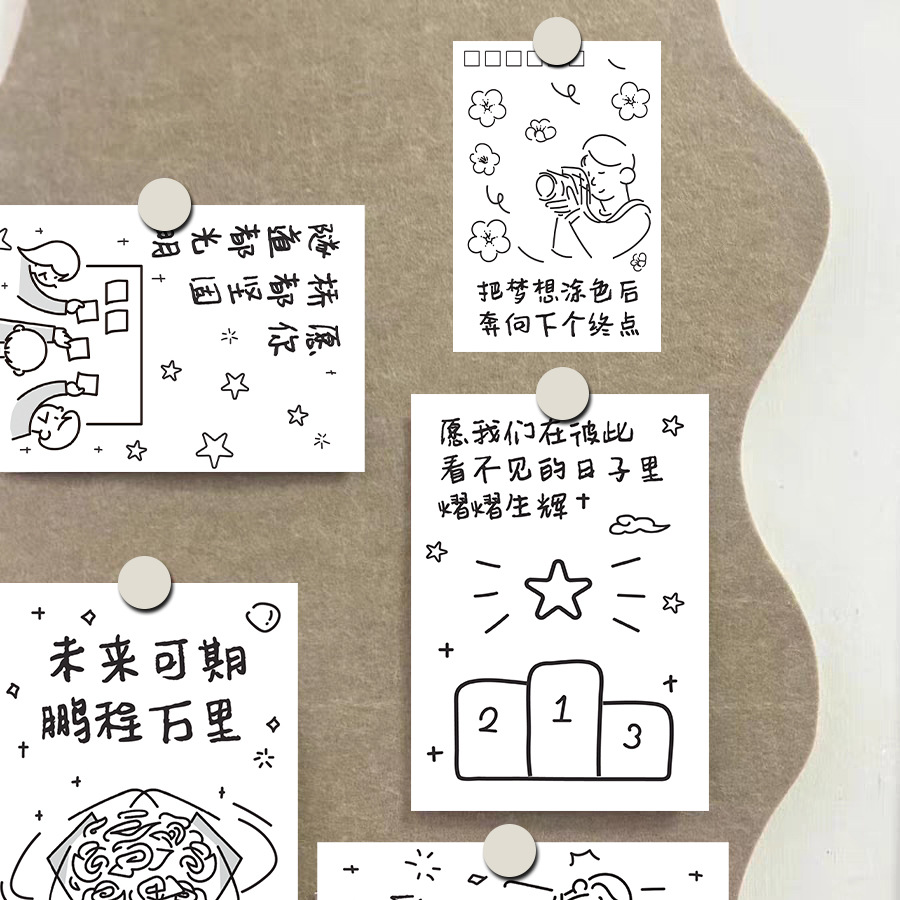 把梦想涂色后
奔向下个终点
愿你
桥都坚固
隧道都光明
愿我们在彼此
看不见的日子里
熠熠生辉
2
1
3
未来可期
鹏程万里